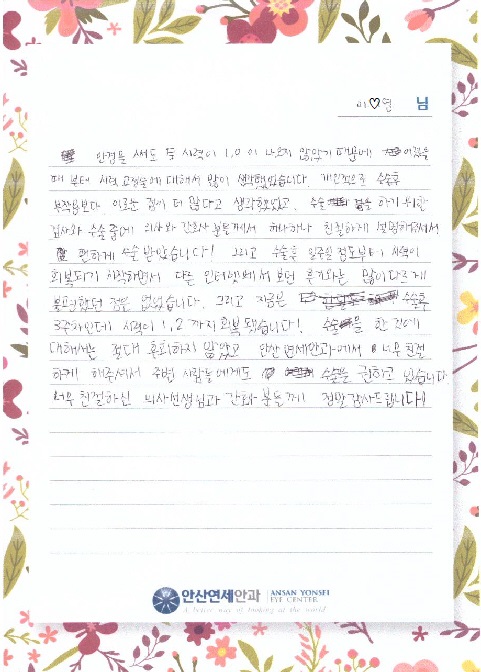 이♡연 님
안경을 써도 두 시력이 1.0 이 나오지 않았기 때문에 어렸을
때 부터 시력 교정술에 대해서 많이 생각했었습니다. 개인적으로 수술후
부작용보다 이로운 점이 더 많다고 생각했었고, 수술을 하기 위한
검사와 수술 중에 의사와 간호사 분들께서 하나하나 친절하게 설명해주셔서
편하게 수술 받았습니다! 그리고 수술후 일주일 정도부터 시력이
회복되기 시작하면서 다른 인터넷에서 보던 후기와는 많이 다르게
불편했던 점은 없었습니다. 그리고 지금은 수술후
3주차인데 시력이 1.2 까지 회복 됐습니다! 수술을 한 것에
대해서는 절대 후회하지 않았고 안산연세안과에서 너무 친절
하게 해주셔서 주변 사람들에게도 수술을 권하고 있습니다
너무 친절하신 의사선생님과 간호사 분들께 정말 감사드립니다!
안산연세안과 ANSAN YONSEI
EYE CENTER
A better way of looking at the world